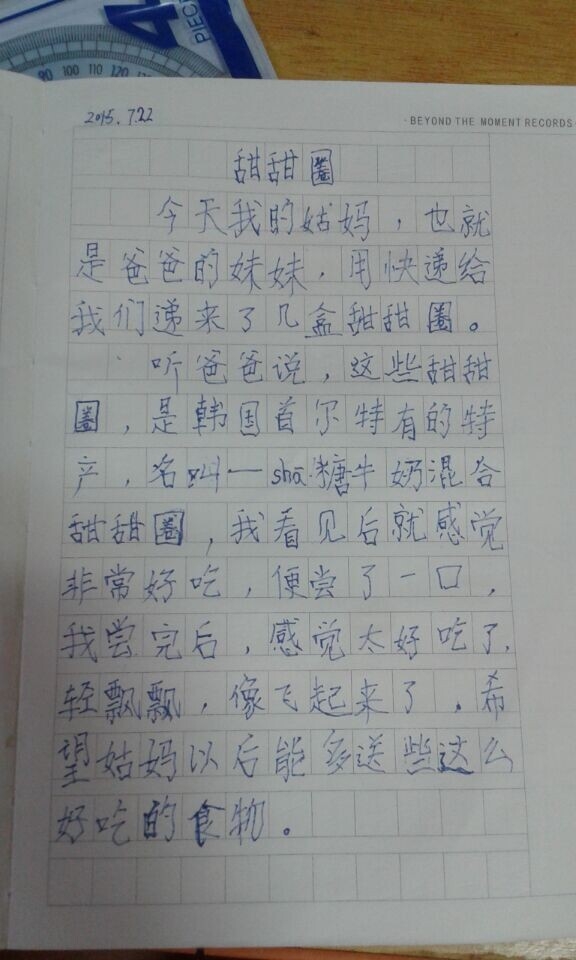 4
PIEC
90 100 110 120
2015.7.22
·BEYOND THE MOMENT RECORDS·
甜甜圈
今天我的姑妈，也就
是爸爸的妹妹，用快递给
我们递来了几盒甜甜圈。
听爸爸说，这些甜甜
圈，是韩国首尔特有的特
产，名叫—shā糖牛奶混合
甜甜圈，我看见后就感觉
非常好吃，便尝了一口，
我尝完后，感觉太好吃了，
轻飘飘，像飞起来了。希
望姑妈以后能多送些这么
好吃的食物。